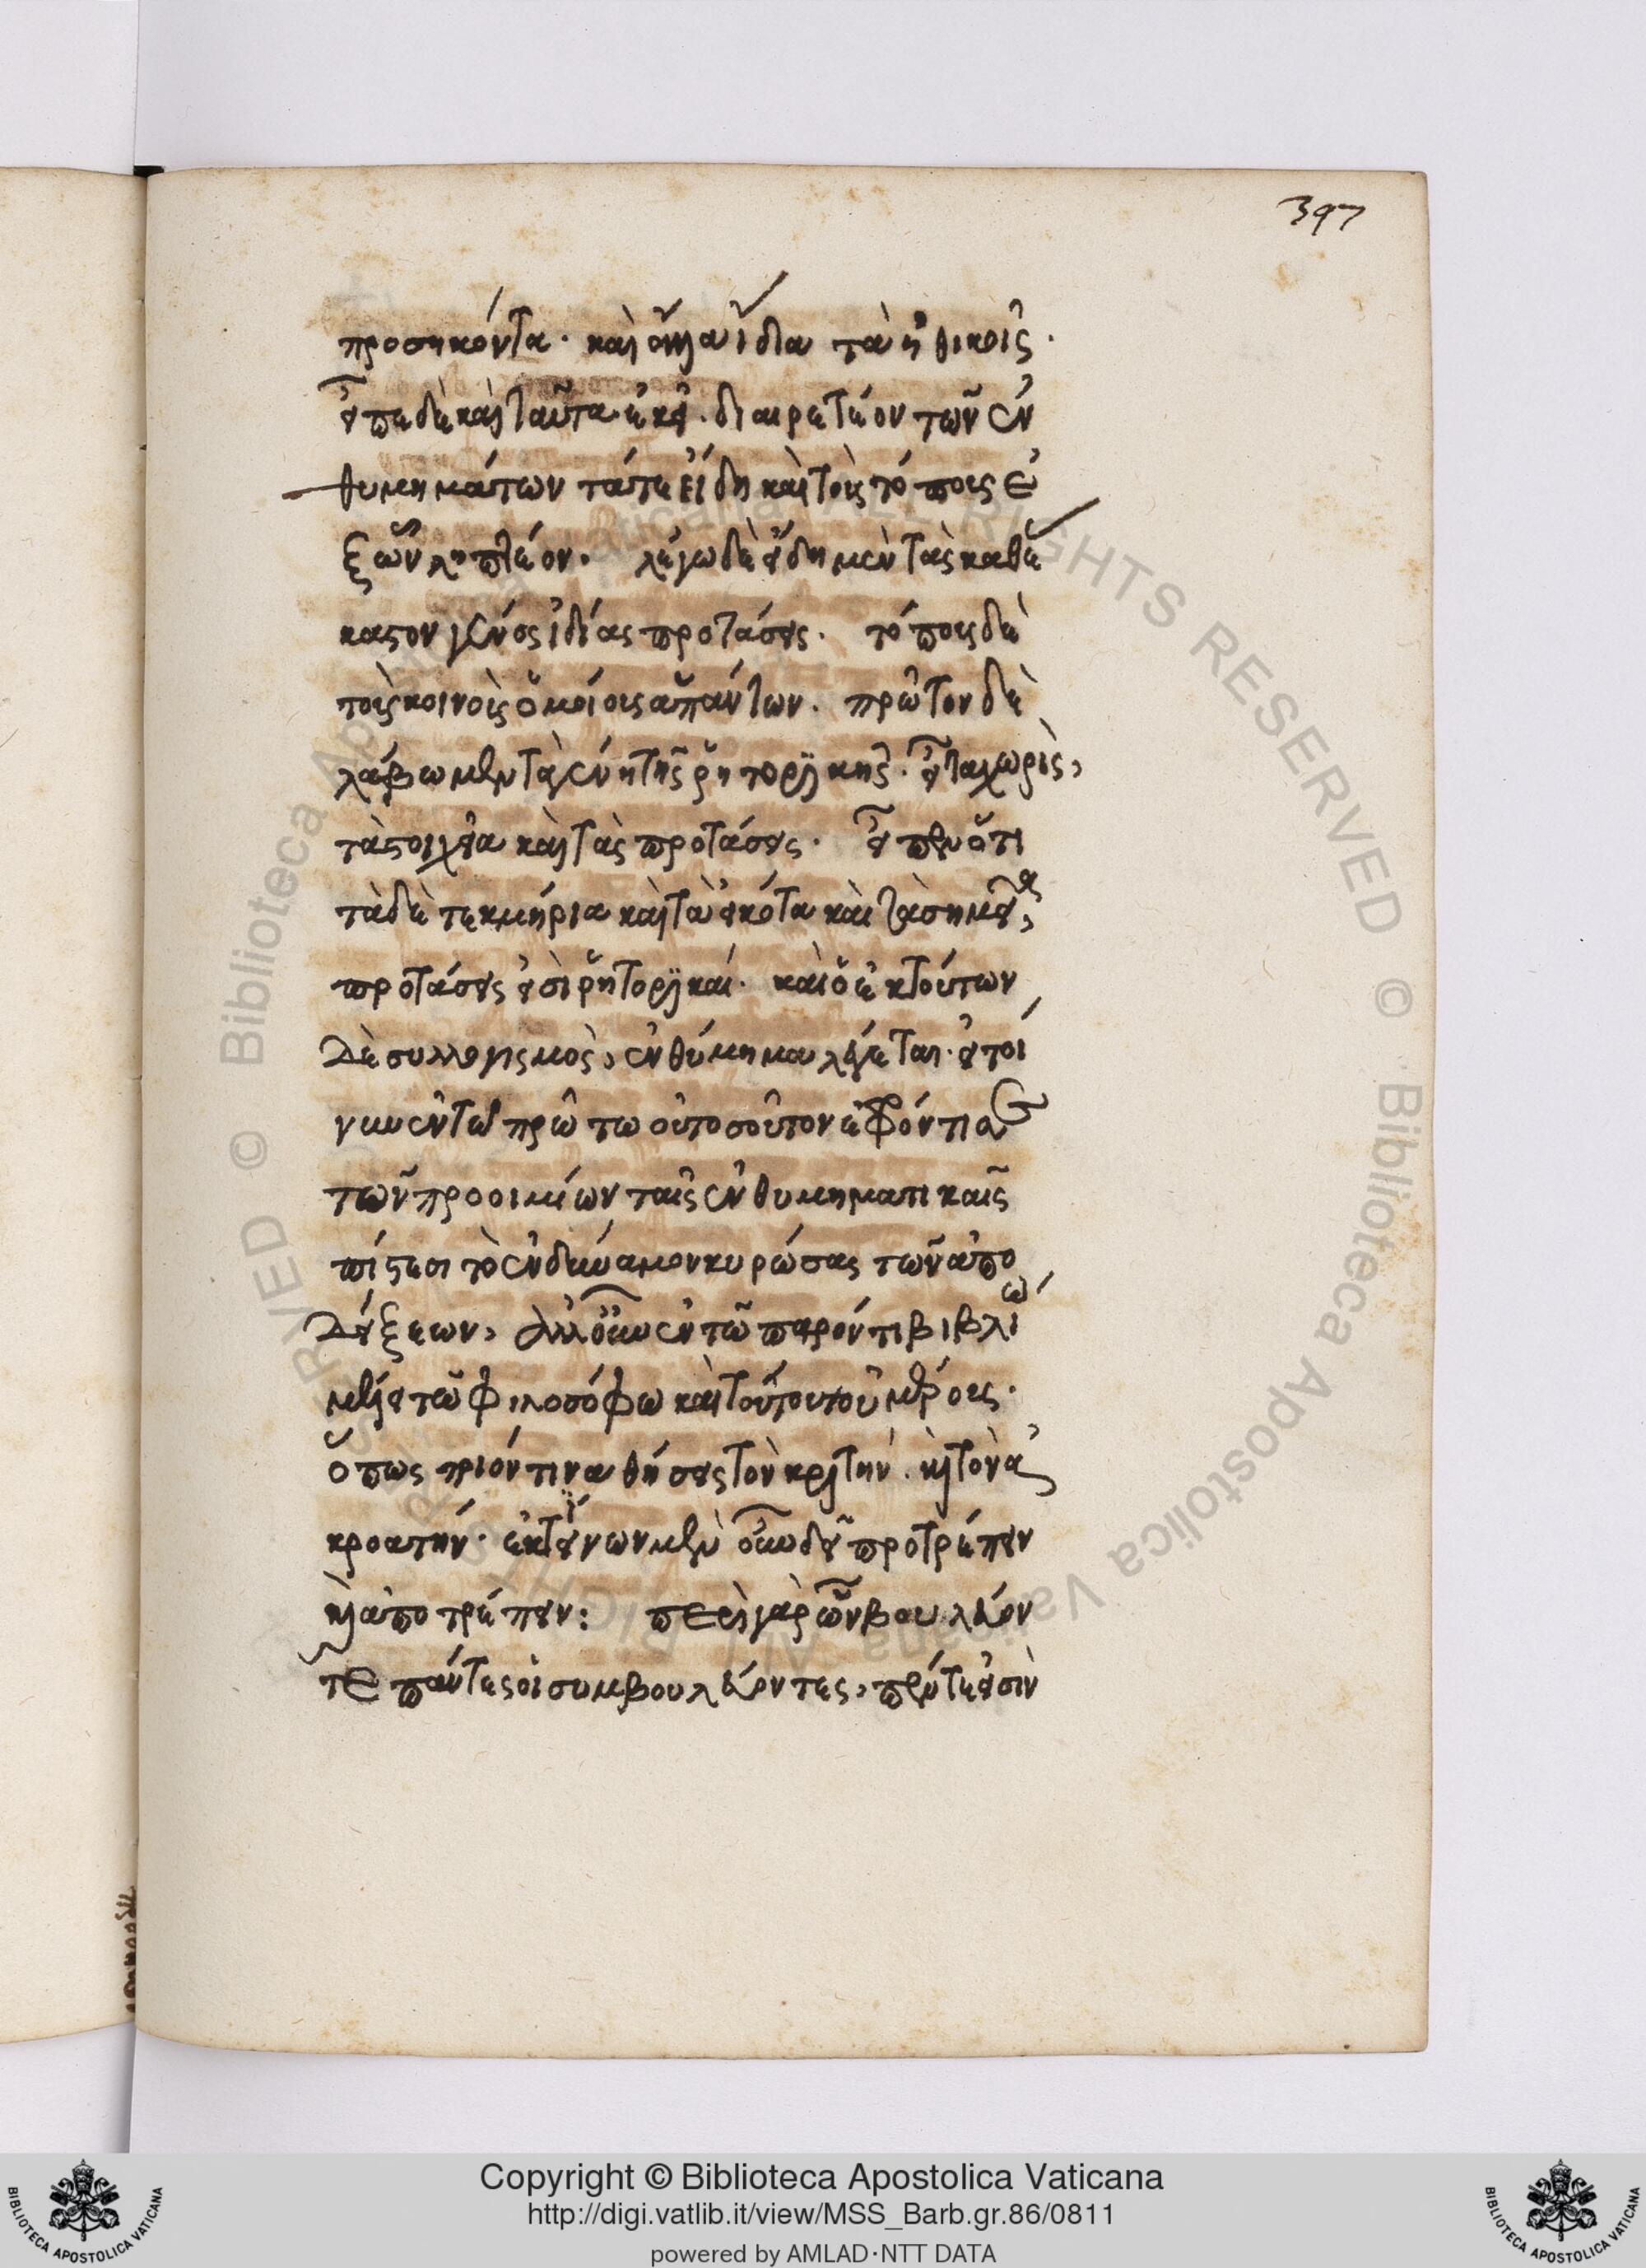 397
προσηκόντα. καὶ ὅσα ἴδια τὰ ἠθικοῖς.
εἶπε δὲ καὶ ταῦτα ἐκεῖ. διαιρετέον τῶν ἐν
θυμημάτων τάτε εἴδη καὶ τοὺς τόπους ἐ
ξ ὧν ληπτέον. λέγω δὲ εἴδη μὲν τὰς καθ' ἕ
καστον γένος ἰδίας προτάσεις. τόπους δὲ
τοὺς κοινοὺς ὁμοίους ἁπάντων. πρῶτον δὲ
λάβωμεν τὰ γένη τῆς ῥητορϊκῆς. εἶτα χωρὶς,
τὰ στοιχεῖα καὶ τὰς προτάσεις. εἶπεν ὅτι
τὰ δὲ τεκμήρια καὶ τὰ εἰκότα καὶ τὰ σημεῖα,
προτάσεις εἰσὶ ῥητορϊκαί. καὶ ὁ ἐκ τούτων
δὲ συλλογισμὸς, ἐνθύμημα λέγεται. εἰ τοί
νυν ἐν τῷ πρώτω
τῶν προοιμίων ταῖς ἐνθυμηματικαῖς
πίστεσι τὸ κυρώσας τῶν ἀπο
δείξεων, ἀλλ' οὖν ἐν τῶ παρόντι βιβλίω
τῶ φιλοσόφω καὶ τούτου τοῦ μέρους.
ὅπως θήσεις τὸν κρϊτήν. ἢ τὸν ἀ
κροατήν. ἐκ τίνων μὲν οὖν δεῖ προτρέπειν
ἢ ἀποτρέπειν: περὶ γὰρ ὧν βουλεύον
τε πάντες οἱ συμβουλεύοντες, πέντε εἰσὶν
Copyright © Biblioteca Apostolica Vaticana
http://digi.vatlib.it/view/MSS_Barb.gr.86/0811
powered by AMLAD·NTT DATA
BIBLIOTECA APOSTOLICA VATICANA
BIBLIOTECA APOSTOLICA VATICANA